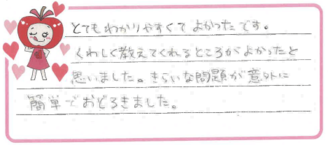 とてもわかりやすくてよかったです。
くわしく教えてくれるところがよかったと
思いました。きらいな問題が意外に
簡単でおどろきました。